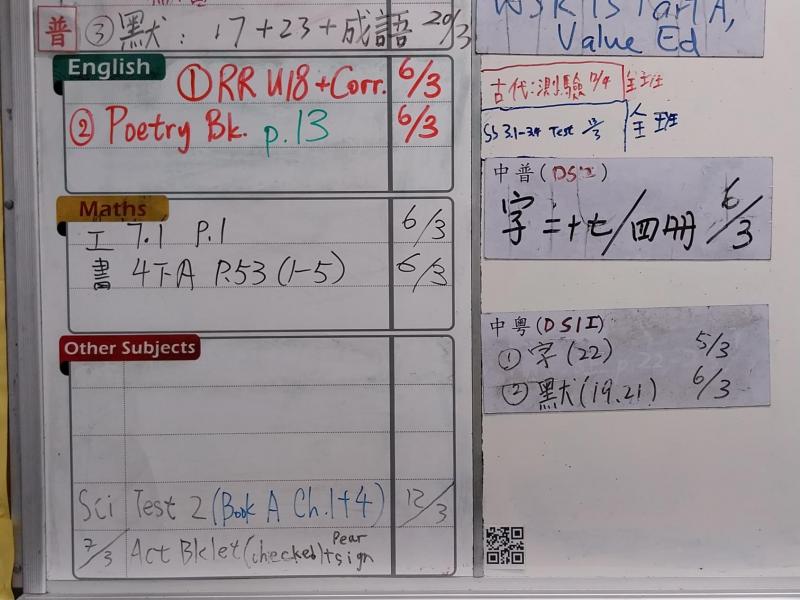 普 ③ 默: 17+23+成語 20/3
English
① RR U18+Corr. 6/3
② Poetry Bk. p.13 6/3
Maths
工 7.1 P.1 6/3
書 4下A P.53 (1-5) 6/3
Other Subjects
Sci Test 2 (Book A Ch.1+4) 12/3
7/3 Act Bklet (checked)+sign
Value Ed
古代:測驗 全班
Test 全班
中普(DSII)
字二十七/四冊 6/3
中粵(DSII)
① 字(22) 5/3
② 默(19.21) 6/3